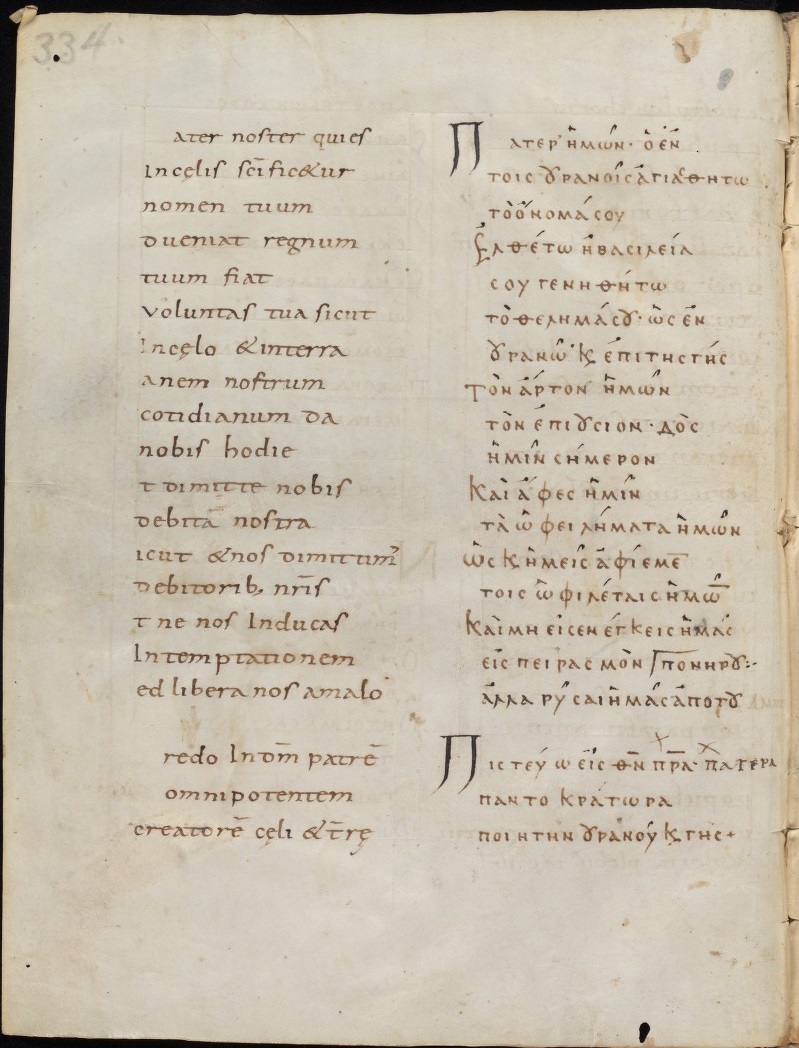 334.
ater noster quies
Incęlis sc̄ific&ur
nomen tuum
dueniat regnum
tuum fiat
voluntas tua sicut
Incęlo &interra
anem nostrum
cotidianum da
nobis hodie
t dimitte nobis
debita nostra
icut &nos dimittim᾽
debitorib, nr̄is
t ne nos Inducas
Intemptationem
ed libera nos amalo
redo Indm̄ patrē
omnipotentem
creatorē cęli &t̄rę
Πατερ ἡμῶν· ὁ ἐν̂
τοις ȣρανοῖς ἁγιασθητω
τὸ ὄνομά σου
Ελθέτω ἡ βασιλεία
σου γενηθήτω
τὸ θελημά σȣ· ὡς ἐν
ȣρανῶ ϗ ἐπι τῆς γῆς
Τὸν ἄρτον ἡμῶν
τὸν ἐπιȣσιον· δὸς
ἡμῖν σήμερον
Καὶ ἄφες ἡμῖν
τὰ ὠφειλήματα ἡμῶν
ὡς ϗ ἡμεῖς ἀφίεμε̄
τοις ὠφιλέταις ἡμῶ̄
Καὶ μη εἰσενέγκεις ἡμάς
εἰς πειρασμὸν πονηρȣ
ἀλλα ρύσαι ἡμᾶς ἀπο τȣ
Πιστεύω εἰς θ̄ν̄ π̄ρ̄α· πατερα
παντοκράτωρα
ποιητην ȣρανού ϗ γης+